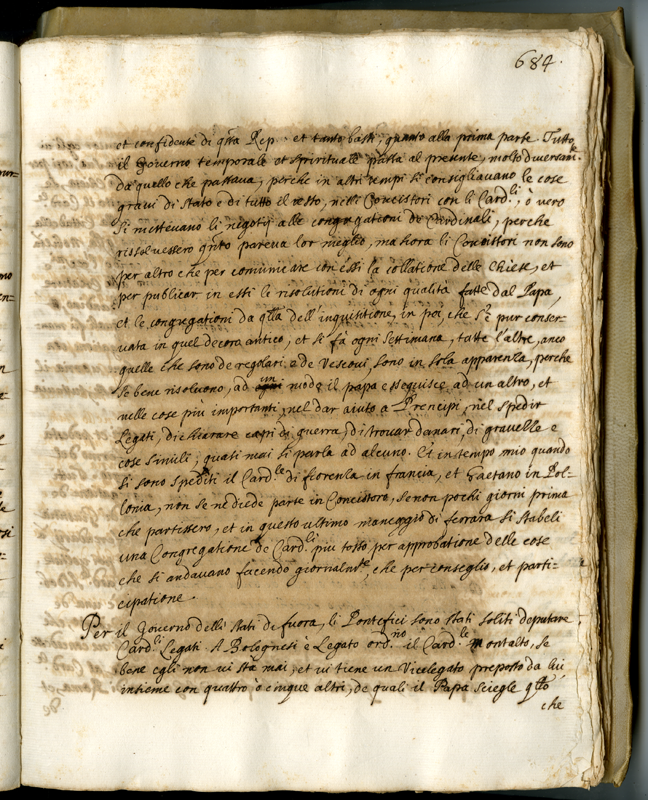 684.
et confidente di q̃sta Rep. et tanto basti, quanto alla prima parte. Tutto
il Governo temporale et spirituale passa al presente, molto diversam.te
da quello che passava, perche in altri tempi si consigliavano le cose
gravi di stato e di tutto il resto, nelli Concistori con li Card.li, ò vero
si mettevano li negotij alle congregationi de Cardinali, perche
rissolvessero q̃nto pareva lor meglio, ma hora li Concistori non sono
per altro che per comunicare con essi la collatione delle Chiese, et
per publicar in essi le risolutioni di ogni qualità fatte dal Papa,
et le congregationi da q̃lla dell'inquisitione, in poi, che s'è pur conser-
vata in quel decoro antico, et si fà ogni settimana, tutte l'altre, anco
quelle che sono de regolari e de Vescovi, sono in sola apparenza, perche
se bene risolvono, ad un modo il papa essequisce ad un altro, et
nelle cose più importanti, nel dar aiuto a Prencipi, nel spedir
Legati, dichiarare capi di guerra, di trovar danari, di gravezze e
cose simili, quasi mai si parla ad alcuno. Et in tempo mio quando
si sono spediti il Card.le di fiorenza in francia, et Gaetano in Pol-
lonia, non se ne diede parte in Concistoro, se non pochi giorni prima
che partissero, et in questo ultimo maneggio di ferrara si stabeli
una Congregatione de Card.li piu tosto per approbatione delle cose
che si andavano facendo giornalm.te, che per conseglio, et parti-
cipatione.
Per il Governo delli stati de fuora, li Pontefici sono stati soliti deputare
Card.li Legati. A Bolognesi è Legato ord.no il Card.le Montalto, se
bene egli non vi stà mai, et vi tiene un Vicelegato preposto da lui
insieme con quattro ò cinque altri, de quali il Papa sciegle q̃llo
che